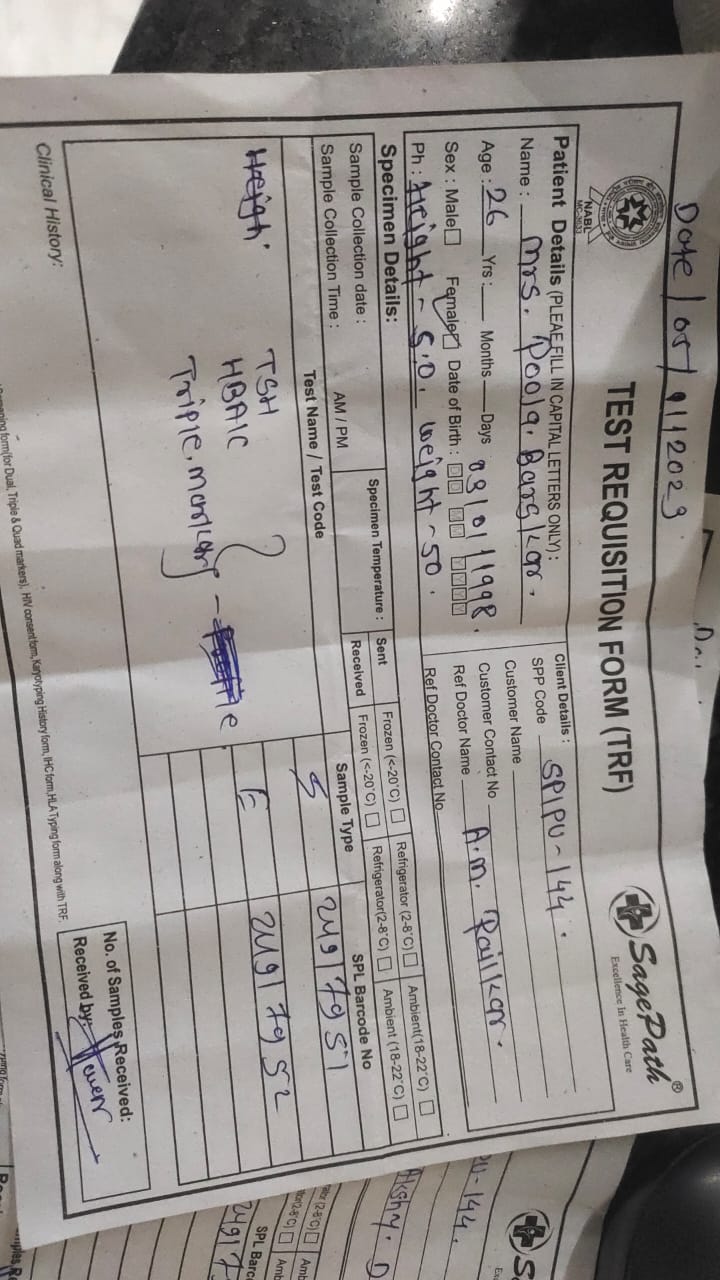 Date / 05/9112023
TEST REQUISITION FORM (TRF)
SagePath®
Excellence In Health Care
NABL
MC-3033
Patient Details (PLEAE FILL IN CAPITAL LETTERS ONLY) :
Name : Mrs. Pooja. Barskar.
Age : 26 Yrs : Months Days 03/01/1998.
Sex : Male Female Date of Birth :
Ph : Height - 5.0. weight - 50.
Client Details :
SPP Code SPIPU-144.
Customer Name
Customer Contact No
Ref Doctor Name A.M.
Ref Doctor Contact No
Specimen Details:
Sample Collection date :
Sample Collection Time : AM / PM
Specimen Temperature :
Sent Frozen (<-20°C) Refrigerator (2-8°C) Ambient(18-22°C)
Received Frozen (<-20°C) Refrigerator(2-8°C) Ambient (18-22°C)
Test Name / Test Code Sample Type SPL Barcode No
Heigh. TSH S 24917951
HBAIC E 24917952
Clinical History:
No. of Samples Received:
Received by:
form(for Dual, Triple & Quad markers), HIV consent form, Karyotyping History form, IHC form, HLA Typing form along with TRF.
PU-144.
Akshy. D
SPL Barc
24917